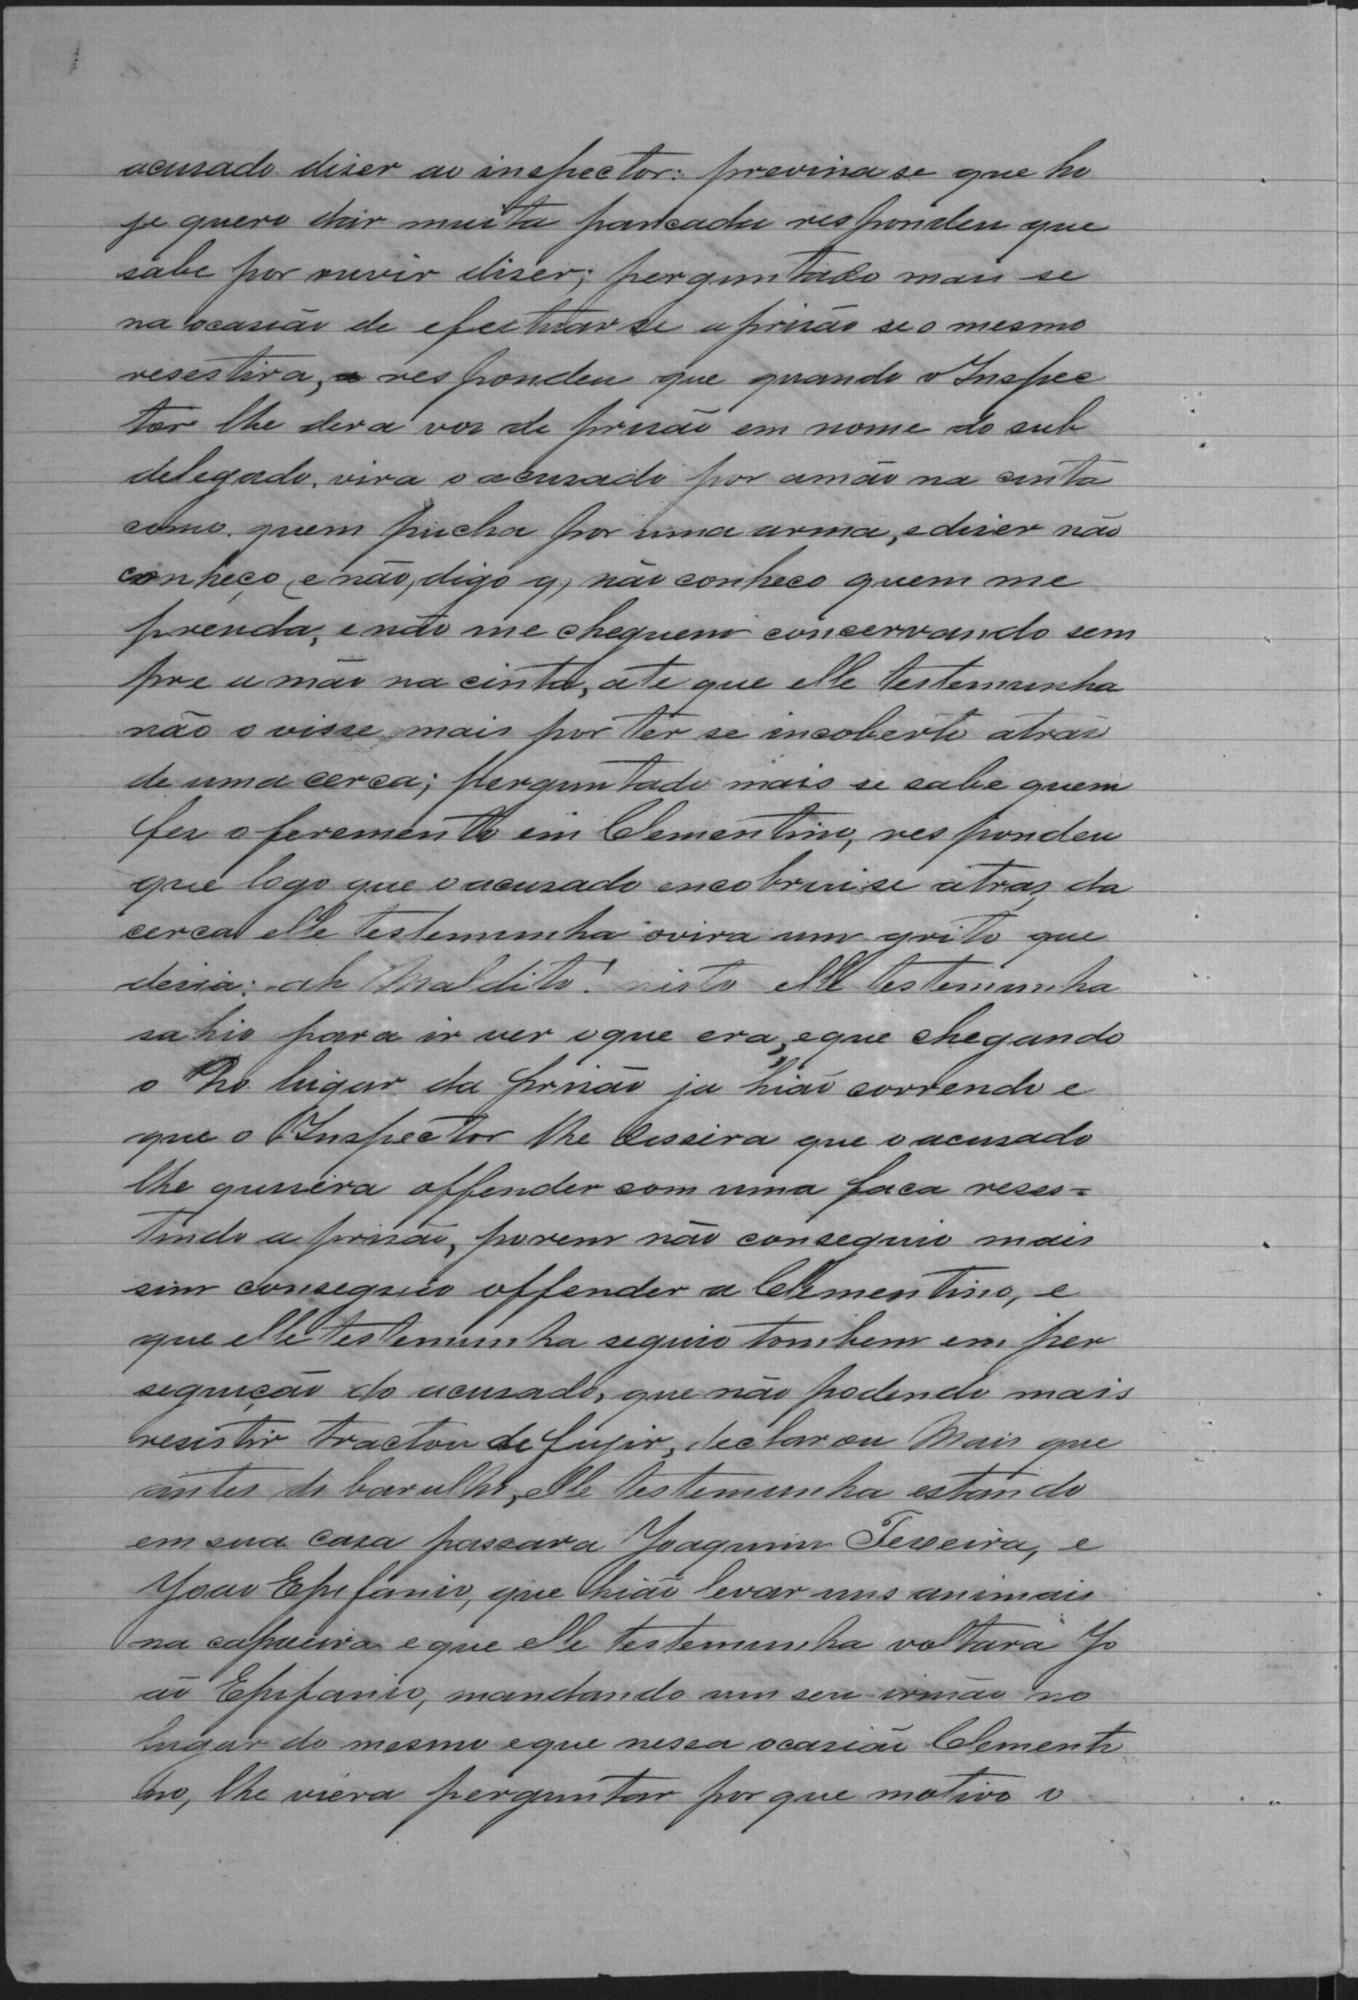 acusado diser ao inspector: previna se que ho
je quero dar muita pancada respondeu que
sabe por ouvir diser; perguntado mais se
na ocasião de efectuar se a prisão se o mesmo
resestira, respondeu que quando o Inspec
tor lhe dera vos de prisão em nome do sub
delegado, vira o acusado por amão na cinta
como quem pucha por uma arma, e diser não
conheço, e não, digo q, não conheco quem me
prenda, e não me cheguem concervando sem
pre a mão na cinta, ate que elle testemunha
não o visse mais por ter se incoberto atrás
de uma cerca; perguntado mais se sabe quem
fes o feremento em Clementino, respondeu
que logo que o acusado encobriuse atras da
cerca elle testemunha ovira um grito que
desia: ah Maldito! nisto elle testemunha
sahio para ir ver oque era, eque chegando
o no lugar da prisão ja hião correndo e
que o Inspector lhe disseira que o acusado
lhe quiséra offender com uma faca reses=
tindo a prisão, porem não conseguio mais
sim conseguio offender a Clementino, e
que elle testemunha seguio tombem em per
seguição do acusado, que não podendo mais
resistir tractou de fugir, declarou Mais que
antes do barulho, elle testemunha estando
em sua casa passara Joaquim Texeira, e
Joao Epifanio, que hião levar uns animais
na capueira e que elle testemunha voltara Jo
ão Epifanio, mandando um seu irmão no
lugar do mesmo eque nessa ocasião Clementi
no, lhe viera perguntar por que motivo o